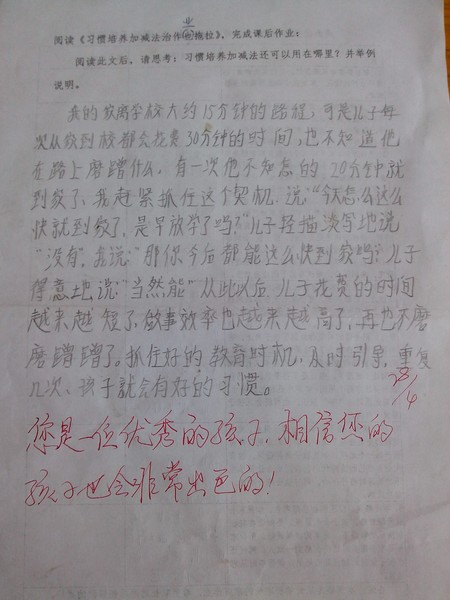 业
阅读《习惯培养加减法治作也拖拉》，完成课后作业：
阅读此文后，请思考：习惯培养加减法还可以用在哪里？并举例
说明。
我的家离学校大约15分钟的路程，可是儿子每
次从家到校都会花费30分钟的时间，也不知道他
在路上磨蹭什么，有一次他不知怎的，20分钟就
到家了，我赶紧抓住这个契机，说：“今天怎么这么
快就到家了，是早放学了吗？”儿子轻描淡写地说
“没有”，我说：“那你今后都能这么快到家吗？儿子
得意地说：“当然能”从此以后，儿子花费的时间
越来越短了，做事效率也越来越高了，再也不磨
磨蹭蹭了。抓住好的教育时机，及时引导，重复
几次，孩子就会有好的习惯。
28/4
您是一位优秀的孩子，相信您的
孩子也会非常出色的！